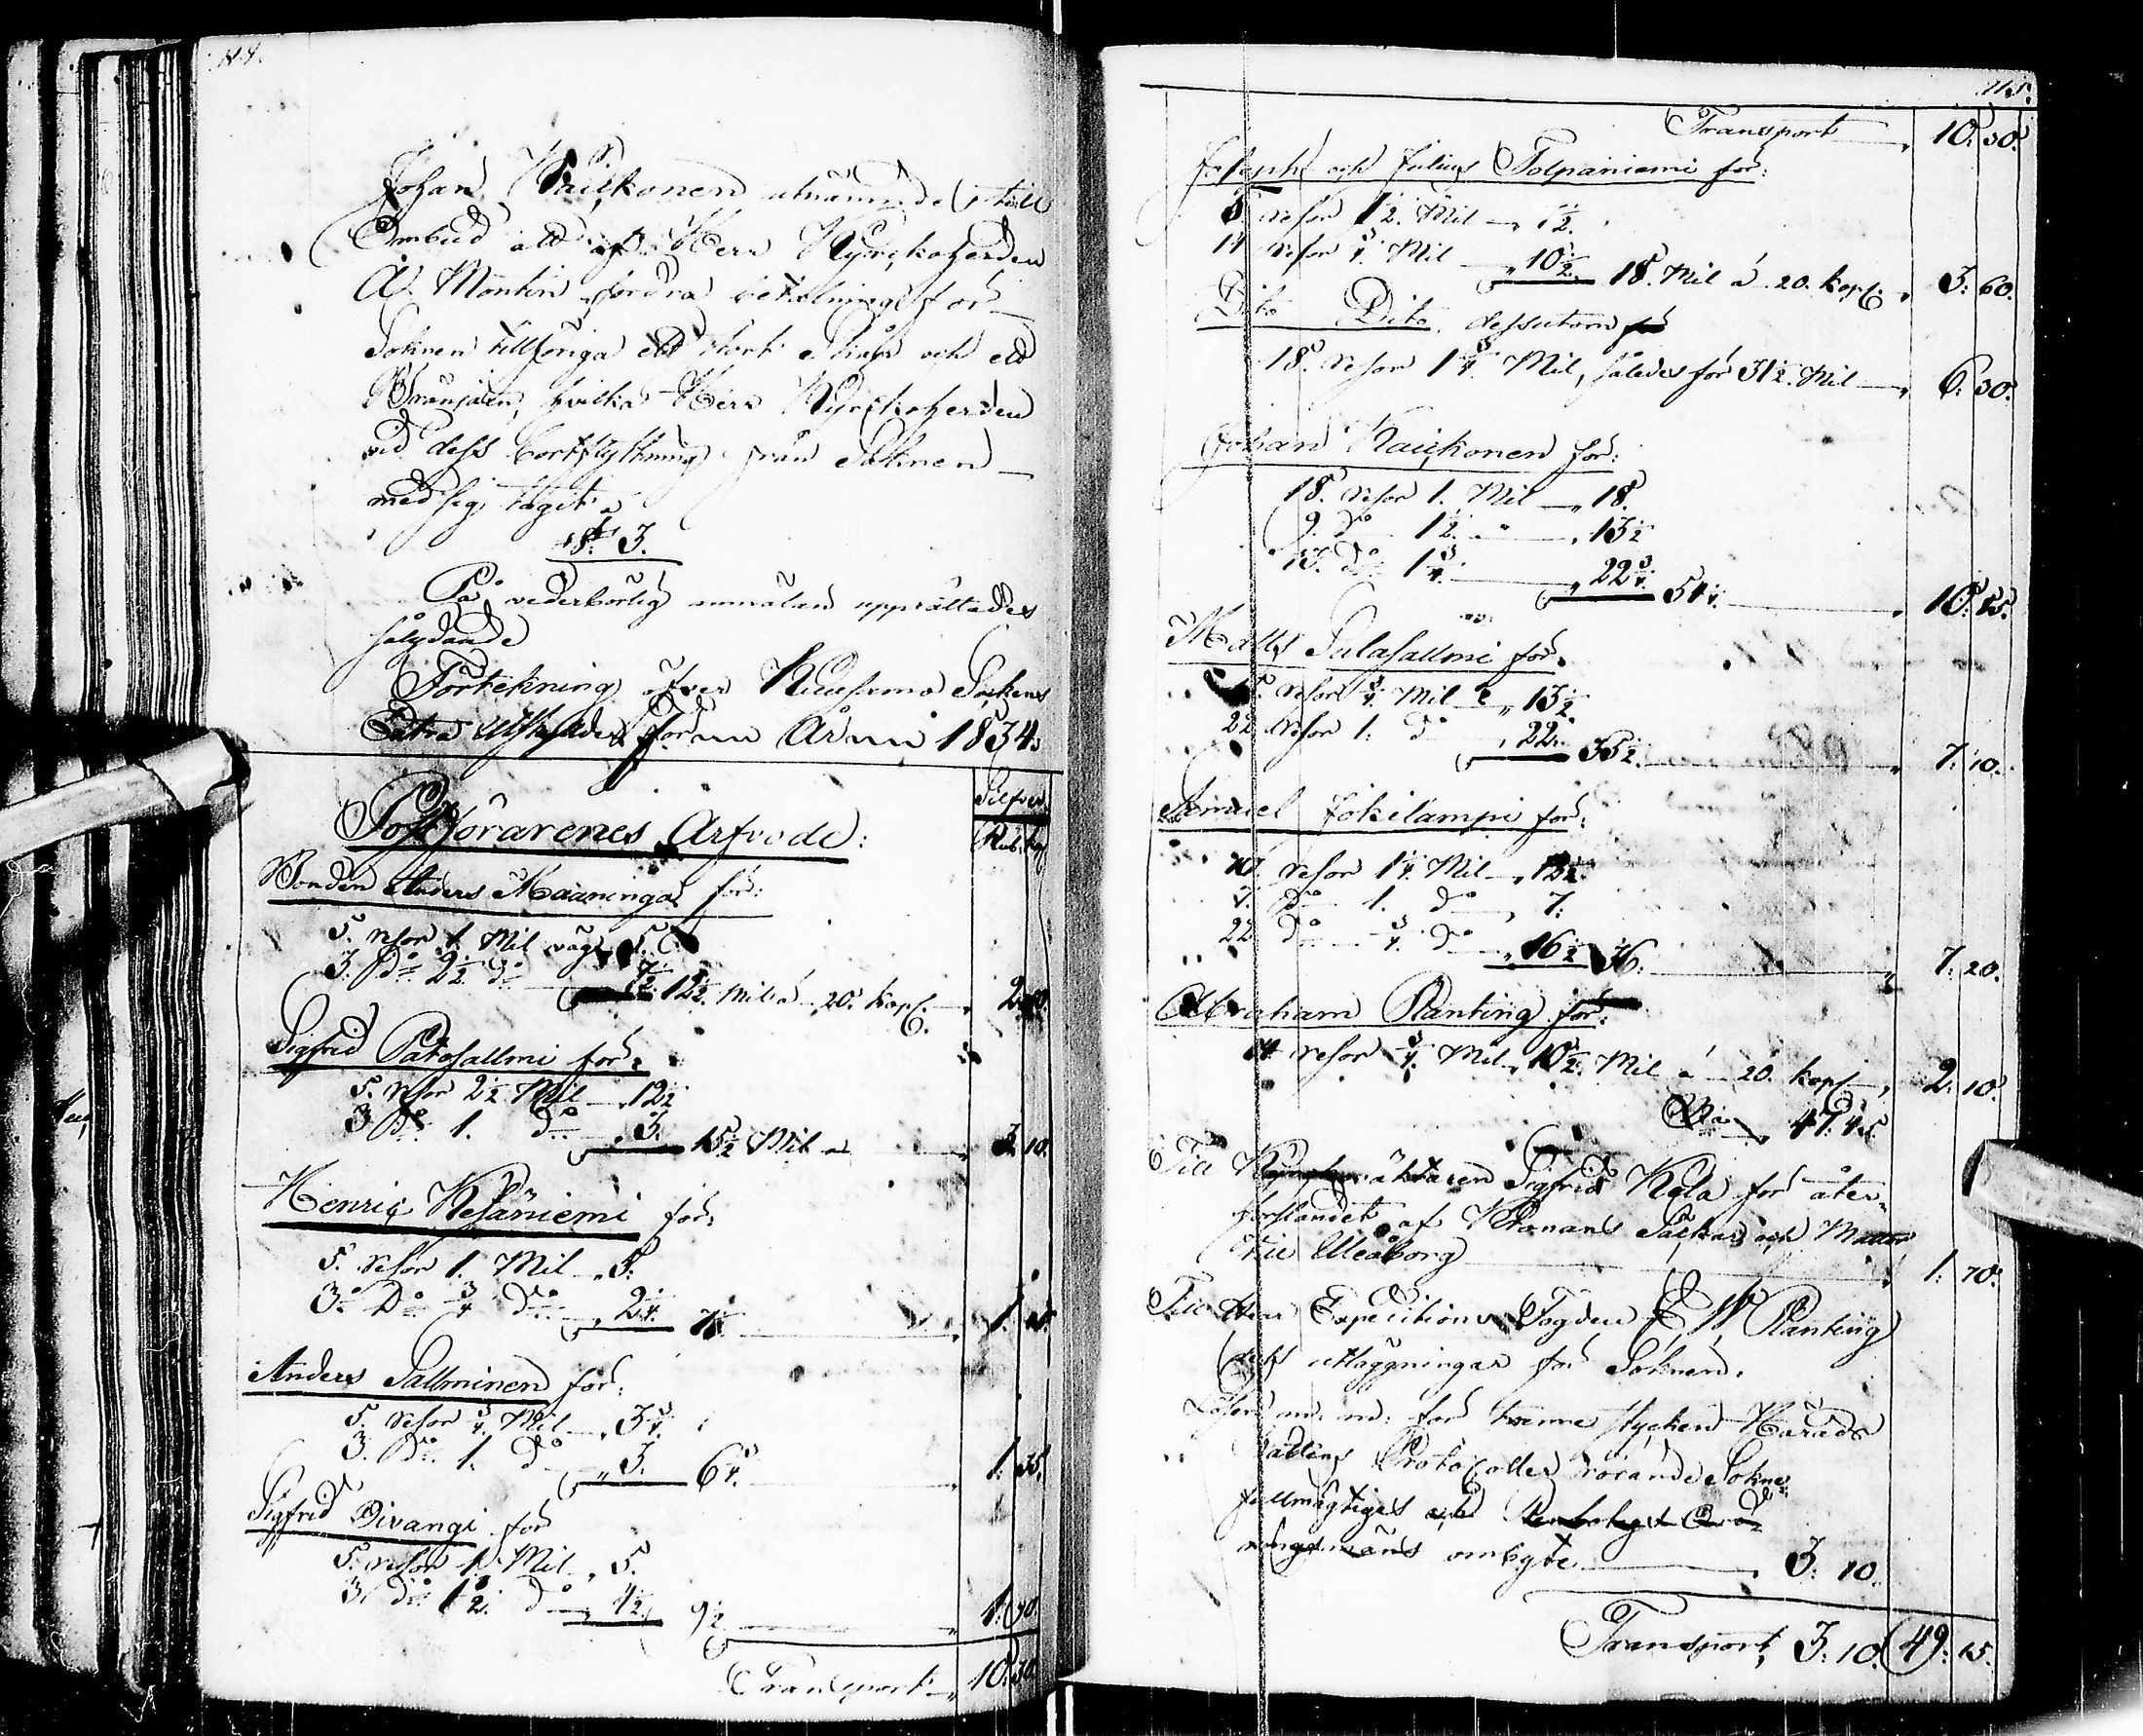 114.
Johan Kaukonen utnämndes till
Ombud att af Herr Kyrckoherden
A. Montin fordra betalning för
Soknen tillhöriga ett stort skåp och ett
Bränjärn, hvilka Herr Kyrckoherden
vid dess bortflyttning från Soknen
med sig tagit.
§ 3.
På vederbörlig anmälan upprättades
följande
Förtekning öfver Kuusamo Sockens
Extra Utskylder för år 1834.
Silfver
Rub. kop.
Postförarenes Arfvode:
Bonden Anders Maaninga för:
5. resor 1. Mil väg 5.
3. Do 2½ do 7½ 12½ Mil à 20. kop. 2: 50.
Sigfrid Patosallmi för:
5. resor 2½ Mil 12½
3 Do 1. do 3. 15½ Mil 3: 10.
Henric Kesäniemi för:
5. resor 1. Mil 5.
3. Do ¾ do 2¼ 7¼ 1: 45.
Anders Sallminen för:
5. resor ¾ Mil 3¾
3. Do 1. do 3. 6¾ 1: 35.
Sigfrid Oivangi för
5. resor 1. Mil 5.
3. do 1½ do 4½ 9½ 1: 90.
Transport 10: 30.
115.
Transport 10: 30.
Joseph och Julius Tolpaniemi för:
5 resor 1½ Mil 7½
14 resor ¾ Mil 10½ 18. Mil à 20. kop. 3: 60.
Dito Dito dessutom
18. resor 1¾ Mil, således för 31½ Mil 6: 30.
Johan Kaukonen för:
18. resor 1. Mil 18.
9. do 1½ 13½
13. do 1¾ 22¾ 54¼ 10: 85.
Matts Sulasallmi för:
18. resor ¾ Mil 13½
22 resor 1. do 22. 35½ 7: 10.
Samuel Jokilampi för:
10. resor 1¼ Mil 12½
7. do 1. do 7.
22 do ¾ do 16½ 36. 7: 20.
Abraham Planting för:
14 resor ¾ Mil 10½ Mil à 20. kop. 2: 10.
S:a 47: 45.
Till Sigfrid Kela för åter-
af Kronans Säckar och Mattor
till Uleåborg 1: 70.
Till Herr Expeditions Fogden E W Planting
dess utläggningar för Soknen.
Lösen m. m. för tvenne stycken Härads
Rättens Protocoller rörande Sokne-
fullmägtiges och
ombyte 3: 10.
Transport 3: 10. 49: 15.